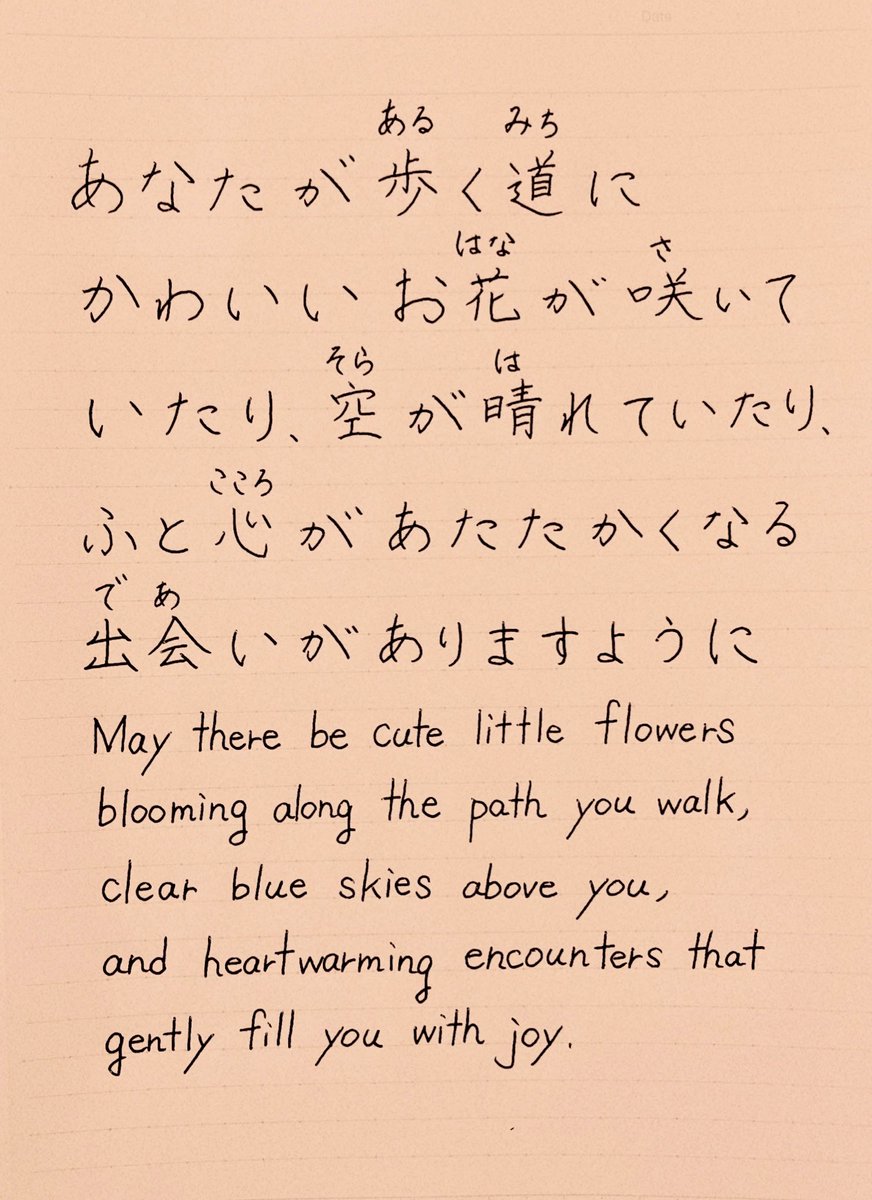 Date
ある みち
あなたが歩く道に
はな さ
かわいいお花が咲いて
そら は
いたり、空が晴れていたり、
こころ
ふと心があたたかくなる
で あ
出会いがありますように
May there be cute little flowers
blooming along the path you walk,
clear blue skies above you,
and heartwarming encounters that
gently fill you with joy.